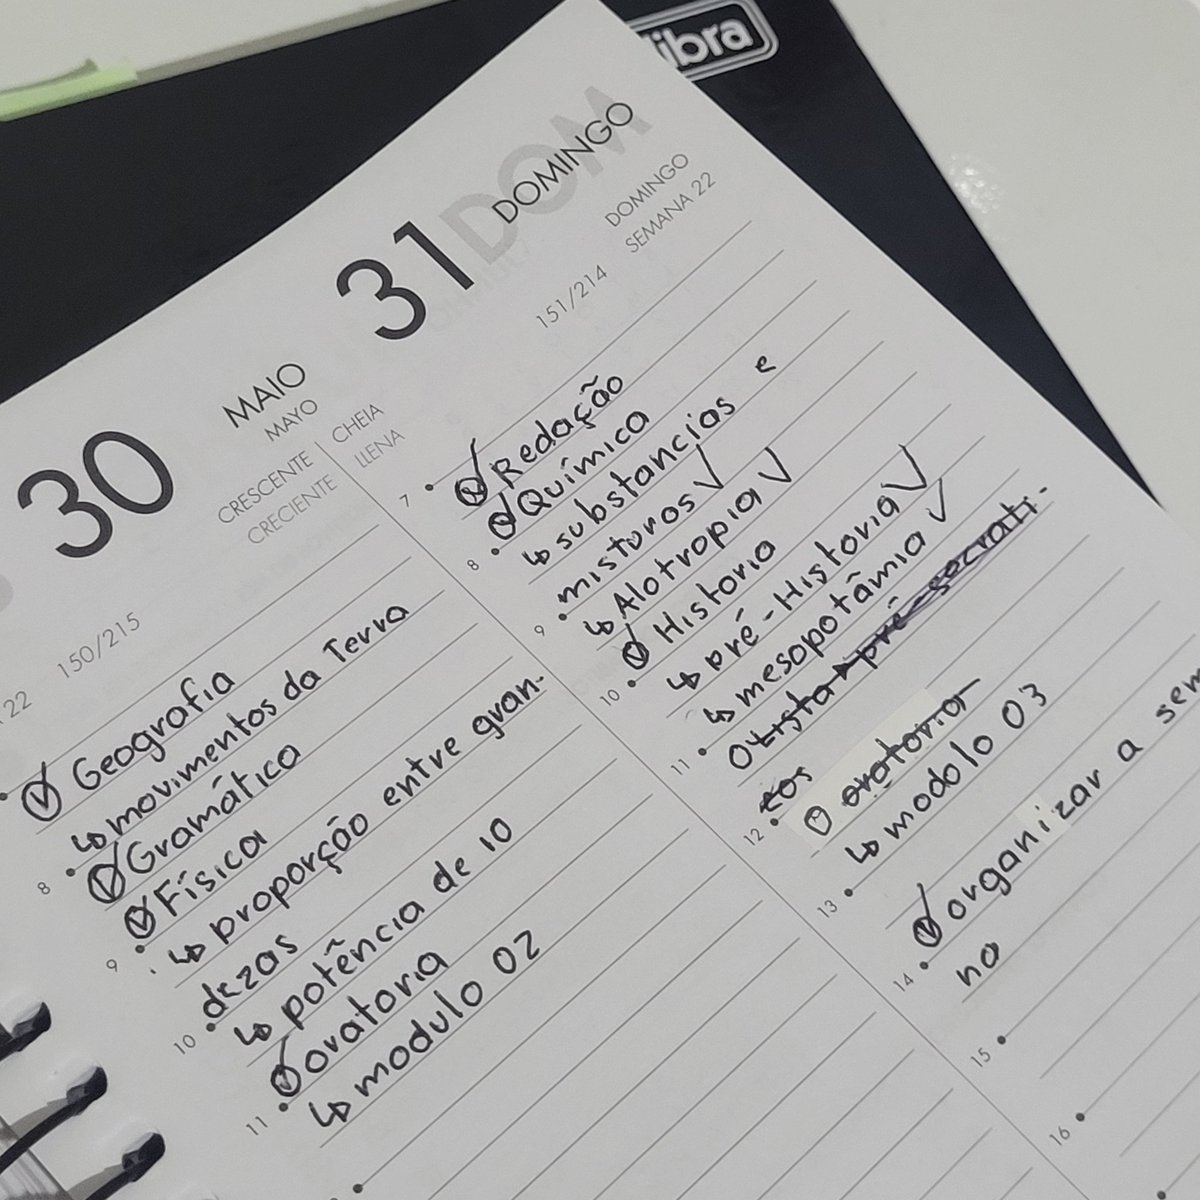 libra
30
MAIO
MAYO
CRESCENTE
CRECIENTE
CHEIA
LLENA
150/215
22
Geografia
↳ movimentos da Terra
Gramática
8
Física
↳ proporção entre gran-
9
dezas
↳ potência de 10
10
oratoria
↳ modulo 02
11
31
DOM
DOMINGO
DOMINGO
SEMANA 22
151/214
7
Redação
Química
8
↳ substancias e
misturas ✓
9
↳ Alotropia ✓
Historia
10
↳ pré-Historia ✓
↳ mesopotâmia ✓
11
Lista → pré-socrati-
cos
12
oratoria
↳ modolo 03
13
organizar a sema
14
na
15
16